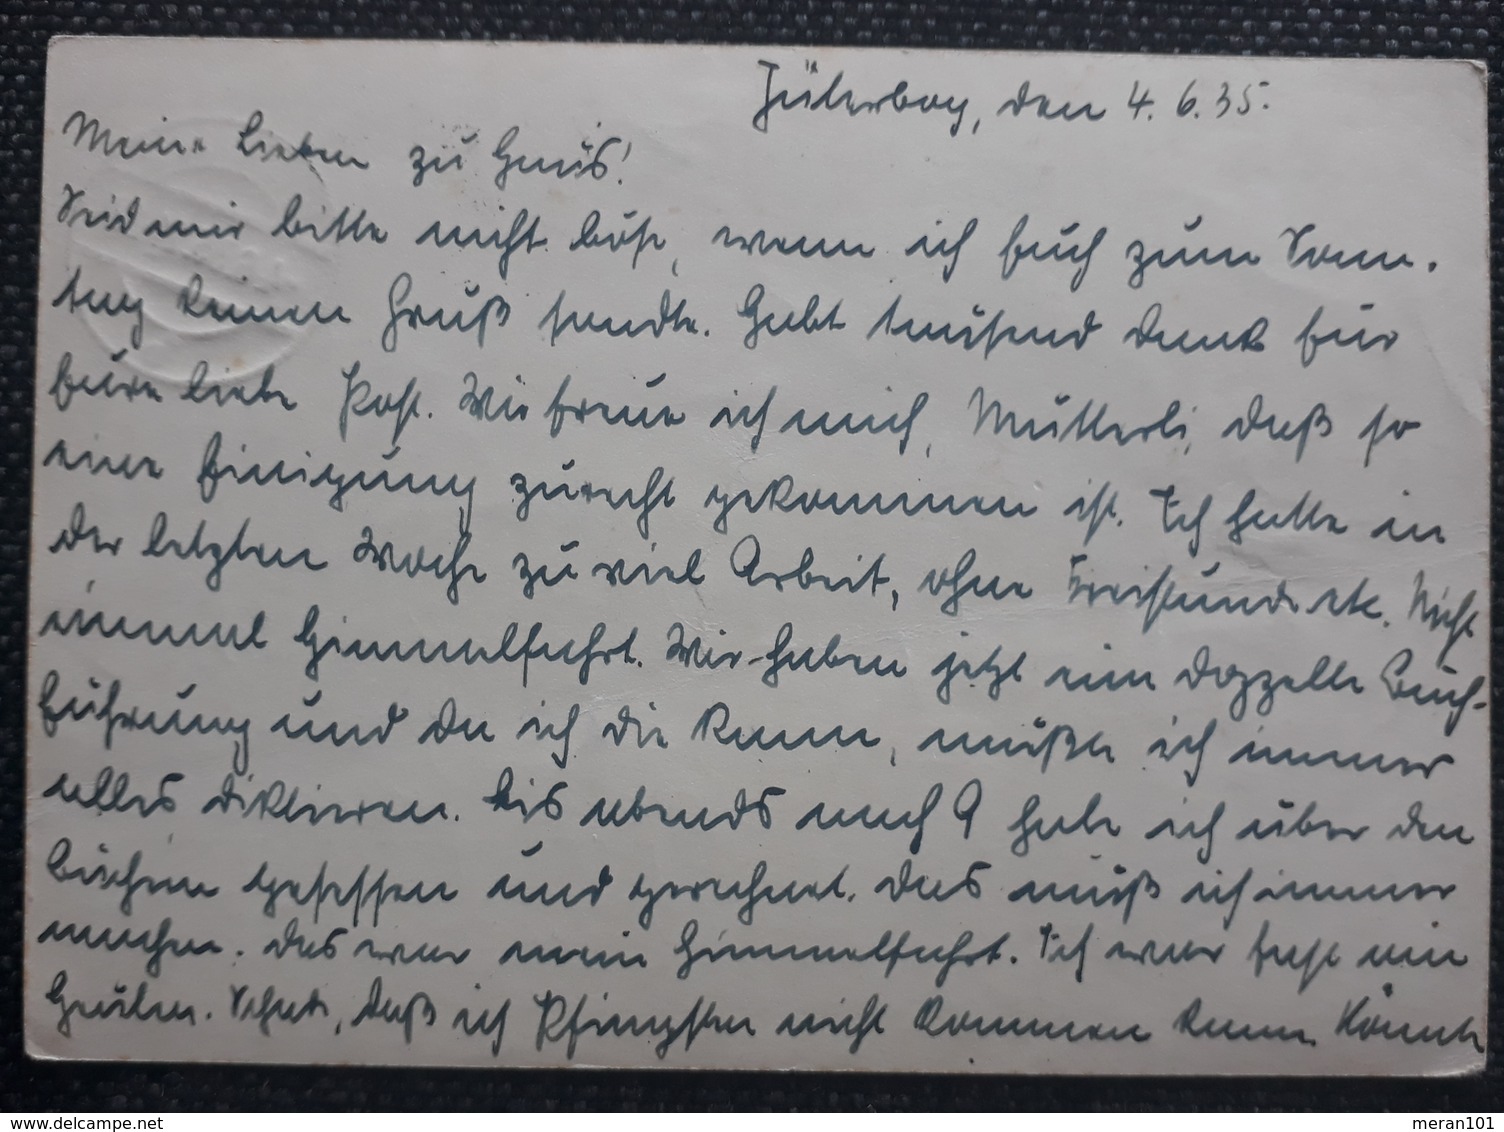 Jüterbog, den 4.6.35.
Meine Lieben zu Haus!
Seid mir bitte nicht böse, wenn ich Euch zum Sonn-
tag keinen Gruß sandte. Habt tausend Dank für
Eure liebe Post. Wie freue ich mich, Mutterli, daß so
eine Einigung zurecht gekommen ist. Ich hatte in
der letzten Woche zu viel Arbeit, ohne Freistunde etc. Nicht
einmal Himmelfahrt. Wir haben jetzt eine doppelte Buch-
führung und da ich die kann, mußte ich immer
alles diktieren. Bis abends nach 9 habe ich über den
Büchern gesessen und gerechnet. Das muß ich immer
machen. Das war mein Himmelfahrt. Ich war fast am
Heulen. Schade, daß ich Pfingsten nicht kommen kann. Könnte
meran101